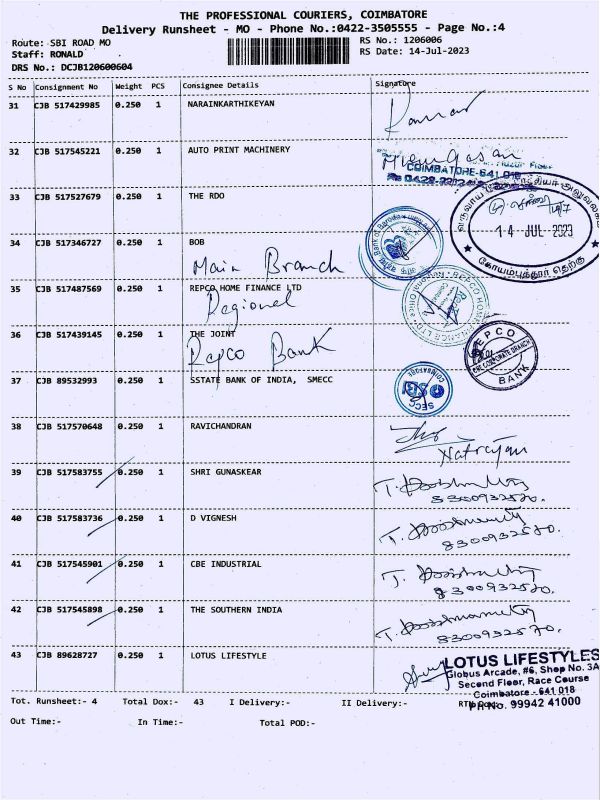 THE PROFESSIONAL COURIERS, COIMBATORE
Delivery Runsheet - MO - Phone No.:0422-3505555 - Page No.:4
Route: SBI ROAD MO RS No.: 1206006
Staff: RONALD RS Date: 14-Jul-2023
DRS No.: DCJB120600604
S No Consignment No Weight PCS Consignee Details Signature
31 CJB 517429985 0.250 1 NARAINKARTHIKEYAN
32 CJB 517545221 0.250 1 AUTO PRINT MACHINERY
COIMBATORE-641 018
33 CJB 517527679 0.250 1 THE RDO
14 JUL 2023
கோயம்புத்தூர் தெற்கு
34 CJB 517346727 0.250 1 BOB
Main Branch
Bank of Baroda
35 CJB 517487569 0.250 1 REPCO HOME FINANCE LTD
Regional
REPCO HOME FINANCE LTD
36 CJB 517439145 0.250 1 THE JOINT
Repco Bank
REPCO BANK
37 CJB 89532993 0.250 1 SSTATE BANK OF INDIA, SMECC
SBI
COIMBATORE
38 CJB 517570648 0.250 1 RAVICHANDRAN
Natrayan
39 CJB 517583755 0.250 1 SHRI GUNASKEAR
8300932570.
40 CJB 517583736 0.250 1 D VIGNESH
8300932570.
41 CJB 517545901 0.250 1 CBE INDUSTRIAL
8300932570.
42 CJB 517545898 0.250 1 THE SOUTHERN INDIA
8300932570.
43 CJB 89628727 0.250 1 LOTUS LIFESTYLE
LOTUS LIFESTYLES
Globus Arcade, #6, Shop No. 3A
Second Floor, Race Course
Coimbatore - 641 018
PH No. 99942 41000
Tot. Runsheet:- 4 Total Dox:- 43 I Delivery:- II Delivery:-
Out Time:- In Time:- Total POD:-